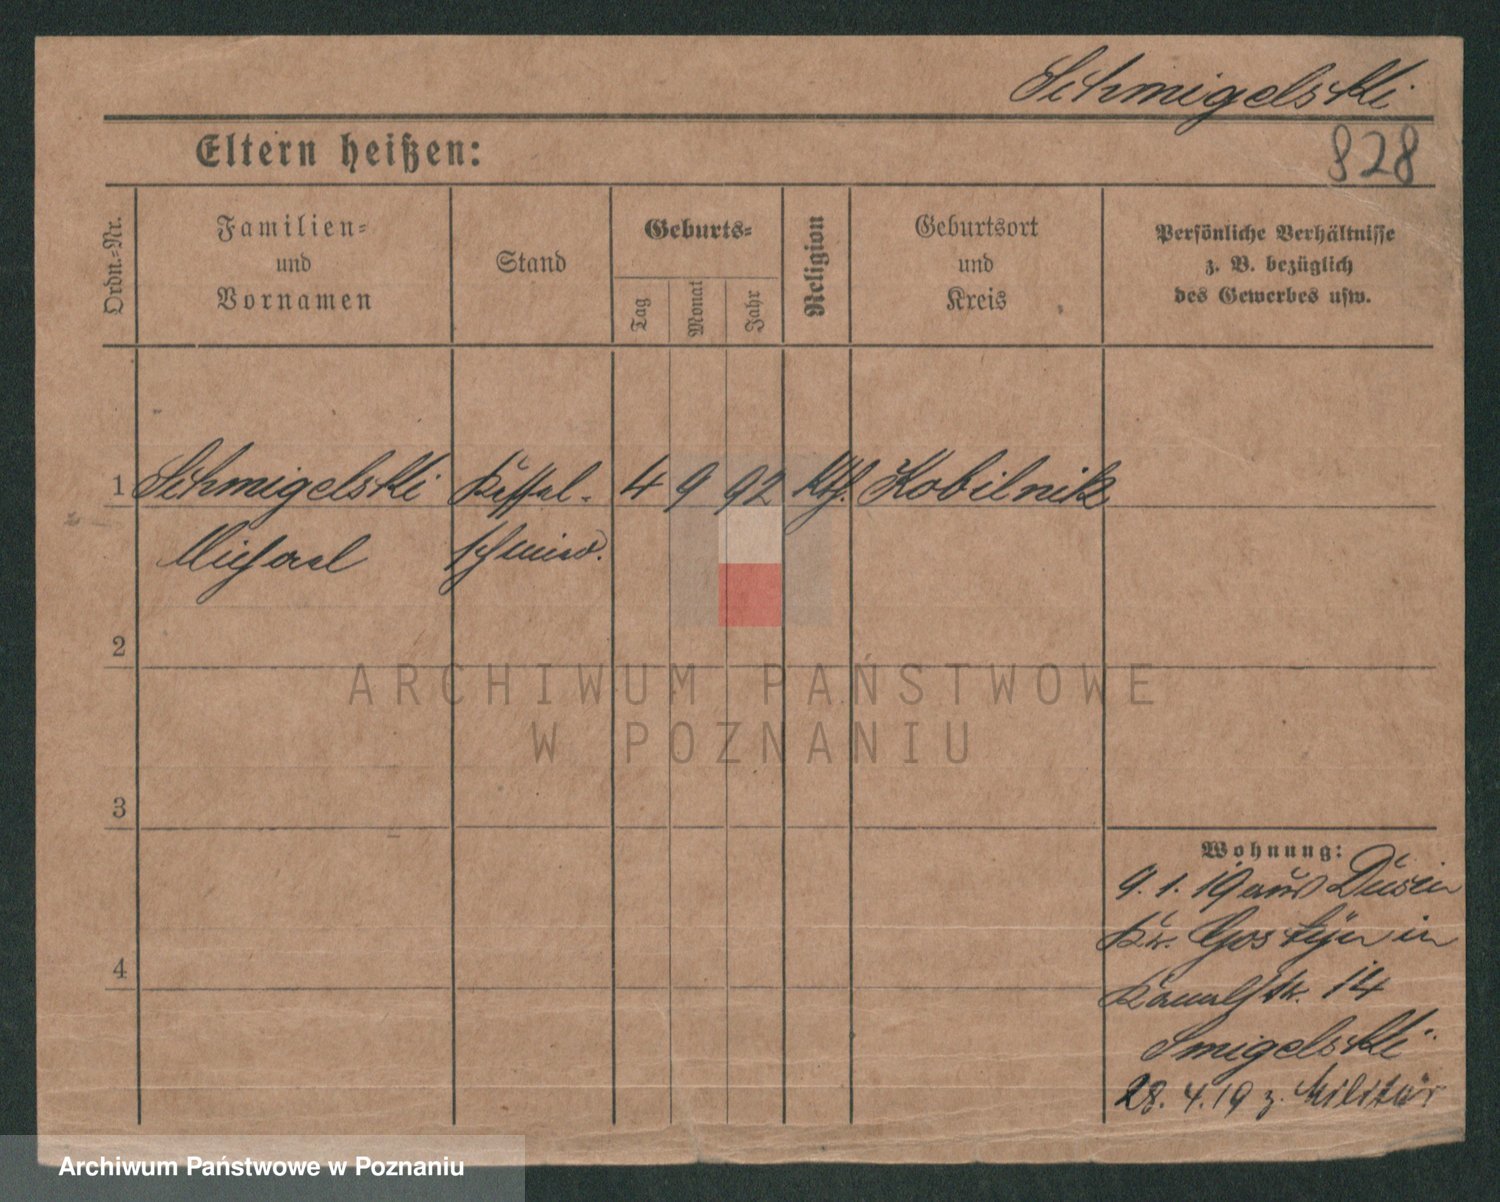 Schmigelski
828
Eltern heißen:
Ordn.-Nr.
Familien-
und
Vornamen
Stand
Geburts-
Tag
Monat
Jahr
Religion
Geburtsort
und
Kreis
Persönliche Verhältnisse
z. B. bezüglich
des Gewerbes usw.
1 Schmigelski Kessel- 4 9 92 kth. Kobilnik
Michael schmied.
2
3
4
Wohnung:
9. 1. 19 aus Dusin
Kr. Gostyn in
Kanalstr. 14
Smigelski
28. 4. 19 z. Militär
ARCHIWUM PAŃSTWOWE
W POZNANIU
Archiwum Państwowe w Poznaniu